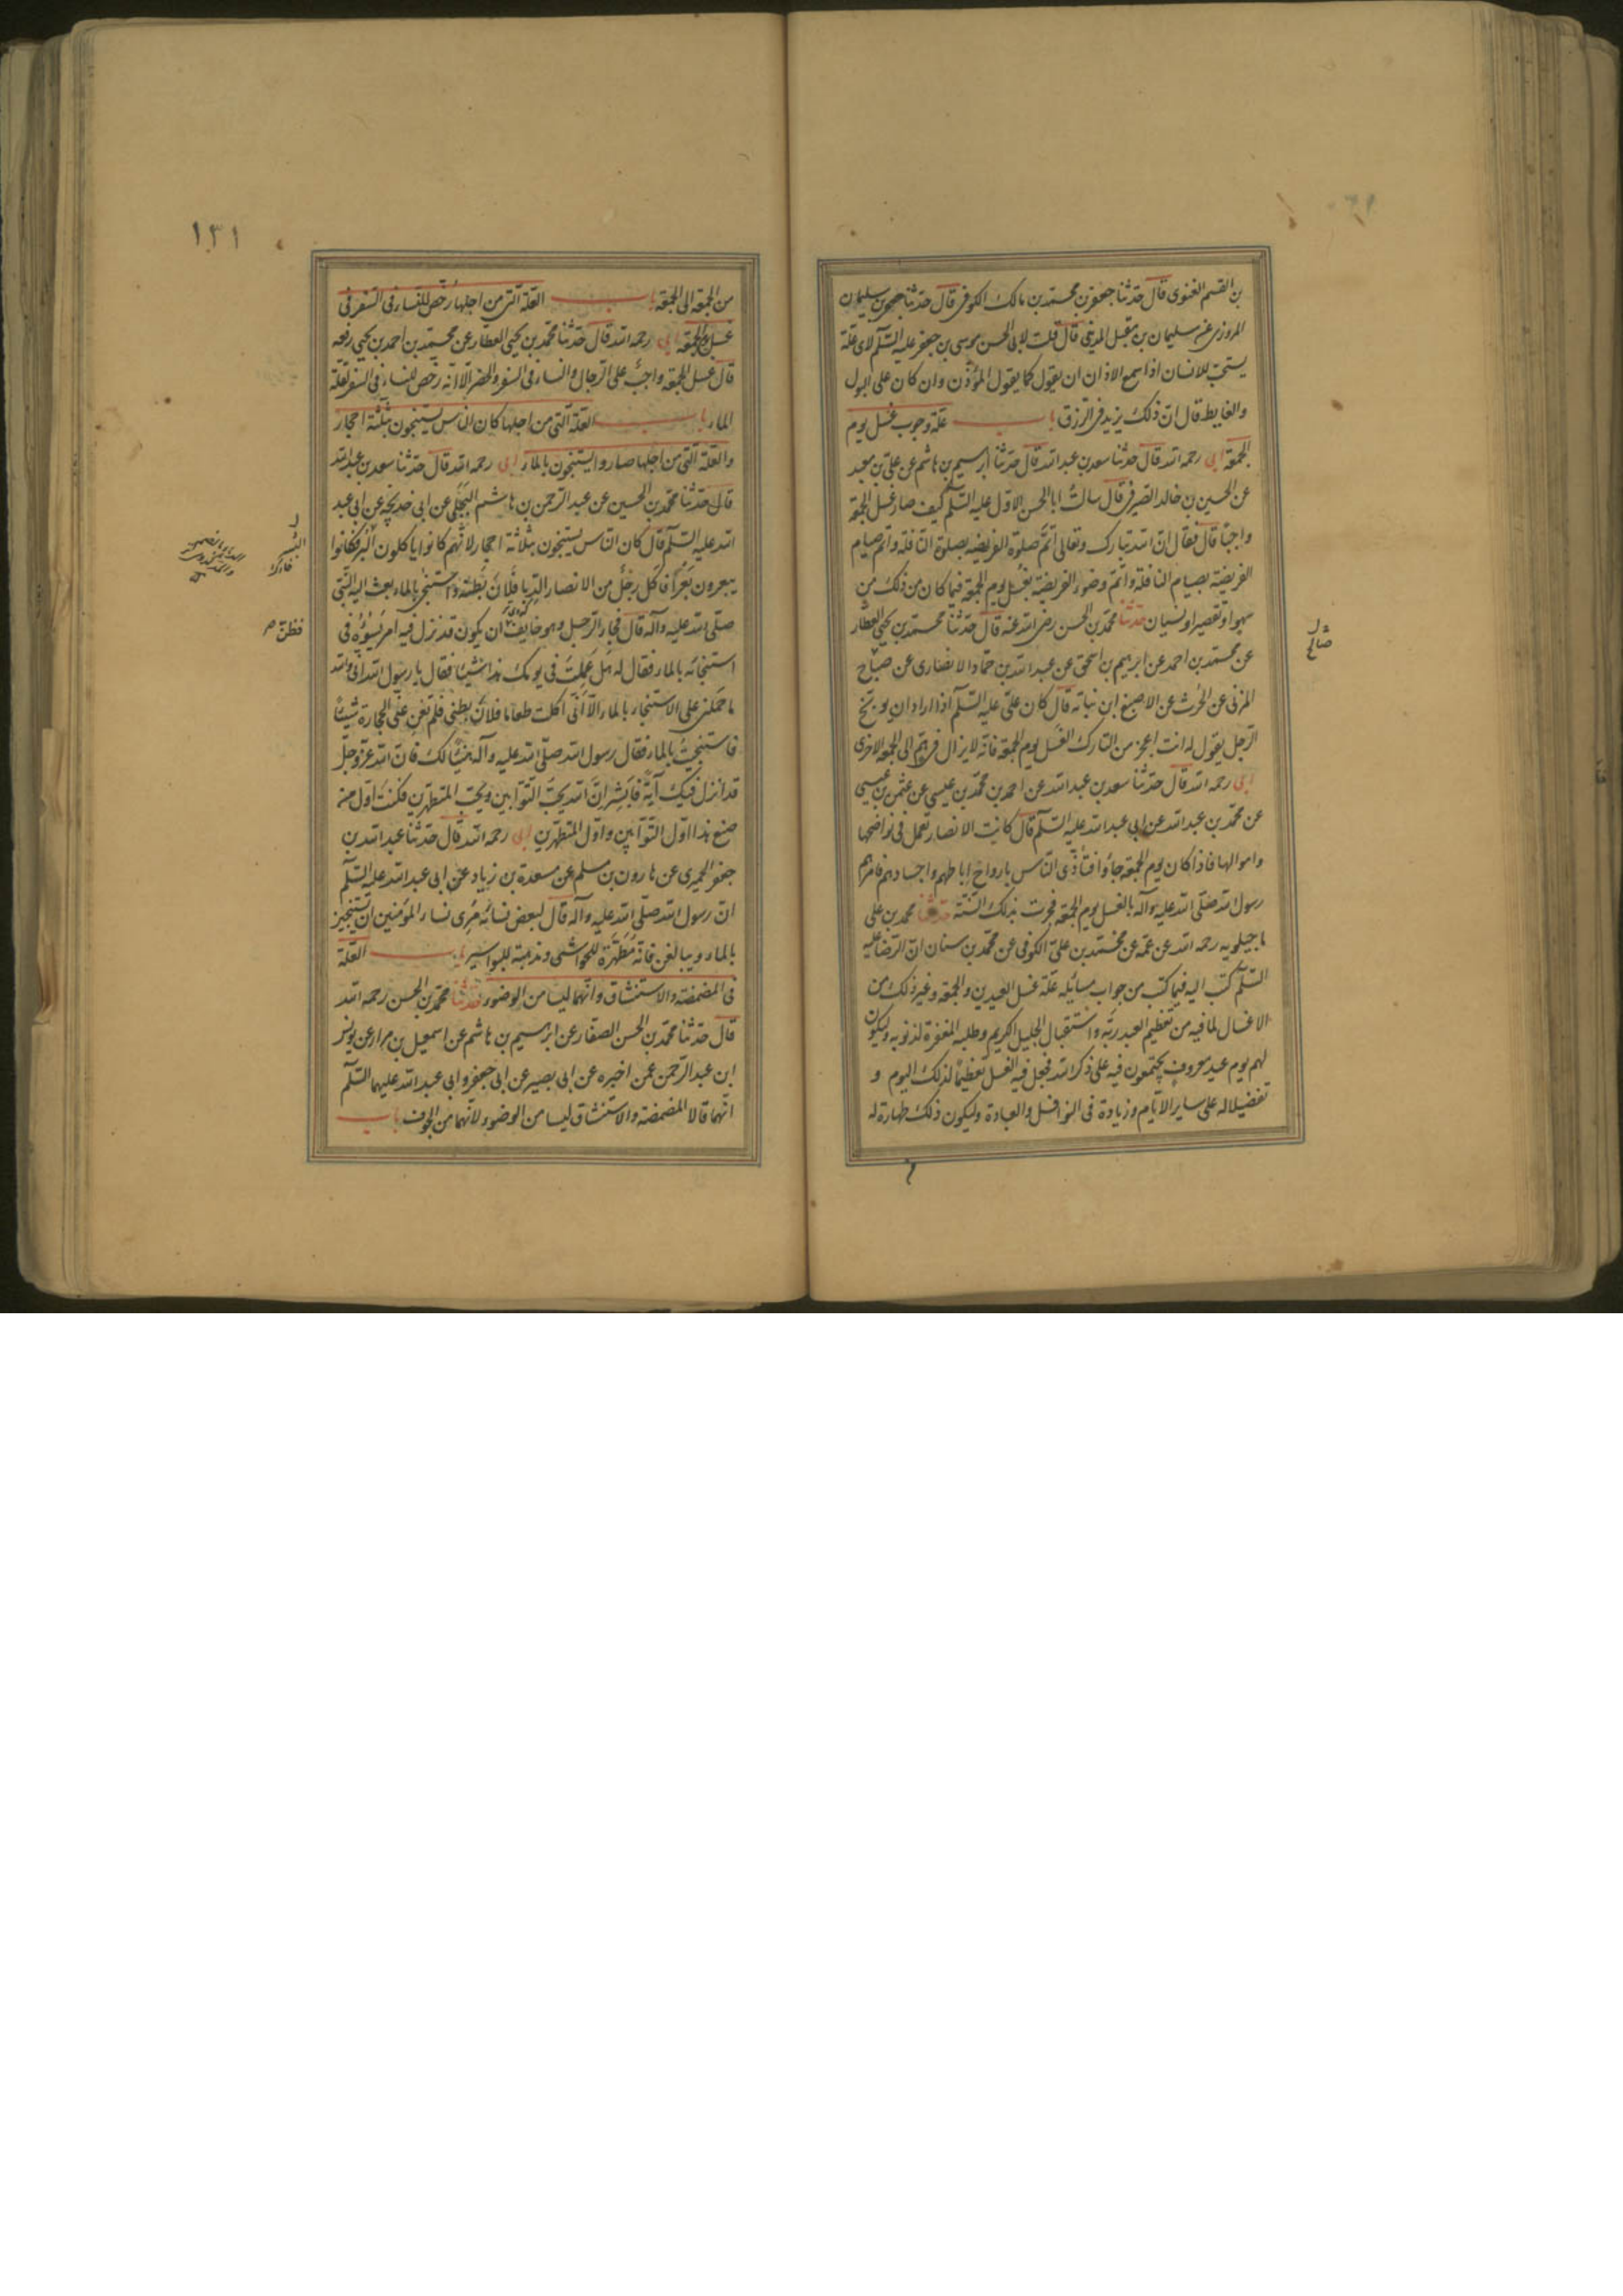 بن القسم الغنوى قال حدثنا جعفر بن محمد بن مالك الكوفى قال حدثنا جعفر بن سليمان
المروزى عن سليمان بن مقبل المدينى قال قلت لابى الحسن موسى بن جعفر عليه السلم لاى علة
يستحب للانسان اذا سمع الاذان ان يقول كما يقول المؤذن وان كان على البول
والغايط قال ان ذلك يزيد فى الرزق باب علة وجوب غسل يوم
الجمعة ابى رحمه الله قال حدثنا سعد بن عبد الله قال حدثنا ابرهيم بن هاشم عن على بن معبد
عن الحسين بن خالد الصيرفى قال سالت ابا الحسن الاول عليه السلم كيف صار غسل الجمعة
واجبا قال فقال ان الله تبارك وتعالى اتم صلوة الفريضه بصلوة النافلة واتم صيام
الفريضة بصيام النافلة واتم وضوء الفريضة بغسل يوم الجمعة فيما كان من ذلك من
سهو او تقصير او نسيان حدثنا محمد بن الحسن رضى الله عنه قال حدثنا محمد بن يحيى العطار
عن محمد بن احمد عن ابرهيم بن اسحق عن عبد الله بن حماد الانصارى عن صباح
المزنى عن الحرث عن الاصبغ ابن نباته قال كان على عليه السلم اذا اراد ان يوبخ
الرجل يقول له انت اعجز من التارك الغسل يوم الجمعة فانه لا يزال فى هم الى الجمعة الاخرى
ابى رحمه الله قال حدثنا سعد بن عبد الله عن احمد بن محمد بن عيسى عن عثمن بن عيسى
عن محمد بن عبد الله عن ابى عبد الله عليه السلم قال كانت الانصار تعمل فى نواضحها
واموالها فاذا كان يوم الجمعة جاؤا فتأذى الناس بارواح اباطهم واجسادهم فامرهم
رسول الله صلى الله عليه وآله بالغسل يوم الجمعة فجرت بذلك السنة حدثنا محمد بن على
ماجيلويه رحمه الله عن عمه عن محمد بن على الكوفى عن محمد بن سنان ان الرضا عليه
السلم كتب اليه فيما كتب من جواب مسائله علة غسل العيدين والجمعة وغير ذلك من
الاغسال لما فيه من تعظيم العبد ربه واستقبال الجليل الكريم وطلبه المغفرة لذنوبه وليكون
لهم يوم عيد معروف يجتمعون فيه على ذكر الله فجعل فيه الغسل تعظيما لذلك اليوم و
تفضيلا له على ساير الايام وزيادة فى النوافل والعبادة وليكون ذلك طهارة له
صالح
١٣١
من الجمعة الى الجمعة باب العلة التى من اجلها رخص للنساء فى السفر فى
غسل الجمعة ابى رحمه الله قال حدثنا محمد بن يحيى العطار عن محمد بن احمد بن يحيى رفعه
قال غسل الجمعة واجب على الرجال والنساء فى السفر والحضر الا انه رخص للنساء فى السفر لعلة
الماء باب العلة التى من اجلها كان الناس يستنجون بثلثة احجار
والعلة التى من اجلها صاروا يستنجون بالماء ابى رحمه الله قال حدثنا سعد بن عبد الله
قال حدثنا محمد بن الحسين عن عبد الرحمن بن هاشم البجلى عن ابى خديجه عن ابى عبد
الله عليه السلم قال كان الناس يستنجون بثلاثة احجار لانهم كانوا ياكلون البر فكانوا
يبعرون بعرا فاكل رجل من الانصار الدبا فلان بطنه واستنجى بالماء بعث اليه النبى
صلى الله عليه وآله قال فجاء الرجل وهو خايف ان يكون قد نزل فيه امر يسوؤه فى
استنجائه بالماء فقال له هل عملت فى يومك هذا شيئا فقال يا رسول الله انى والله
ما حملنى على الاستنجاء بالماء الا انى اكلت طعاما فلان بطنى فلم تغن عنى الحجارة شيئا
فاستنجيت بالماء فقال رسول الله صلى الله عليه وآله هنيئا لك فان الله عز وجل
قد انزل فيك آية فابشر ان الله يحب التوابين ويحب المتطهرين فكنت اول من
صنع هذا اول التوابين واول المتطهرين ابى رحمه الله قال حدثنا عبد الله بن
جعفر الحميرى عن هارون بن مسلم عن مسعدة بن زياد عن ابى عبد الله عليه السلم
ان رسول الله صلى الله عليه وآله قال لبعض نسائه مرى نساء المؤمنين ان يستنجين
بالماء ويبالغن فانه مطهرة للحواشى ومذهبة للبواسير باب العلة
فى المضمضة والاستنشاق وانهما ليسا من الوضوء حدثنا محمد بن الحسن رحمه الله
قال حدثنا محمد بن الحسن الصفار عن ابرهيم بن هاشم عن اسمعيل بن مرار عن يونس
ابن عبد الرحمن عمن اخبره عن ابى بصير عن ابى جعفر وابى عبد الله عليهما السلم
انهما قالا المضمضة والاستنشاق ليسا من الوضوء لانهما من الجوف باب
البسر